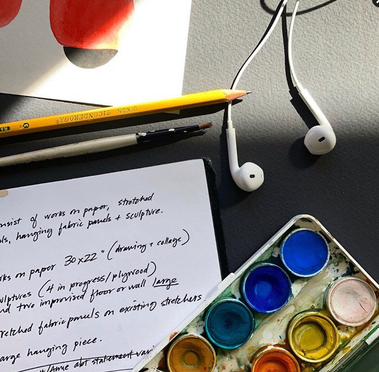 TICONDEROGA
nsist of works on paper, stretched
ls, hanging fabric panels + sculpture.
rks on paper 30x22" (drawing + collage)
ulptures (4 in progress/plywood)
nd two improvised floor or wall) large
retched fabric panels on existing stretchers
arge hanging piece.
abt statement